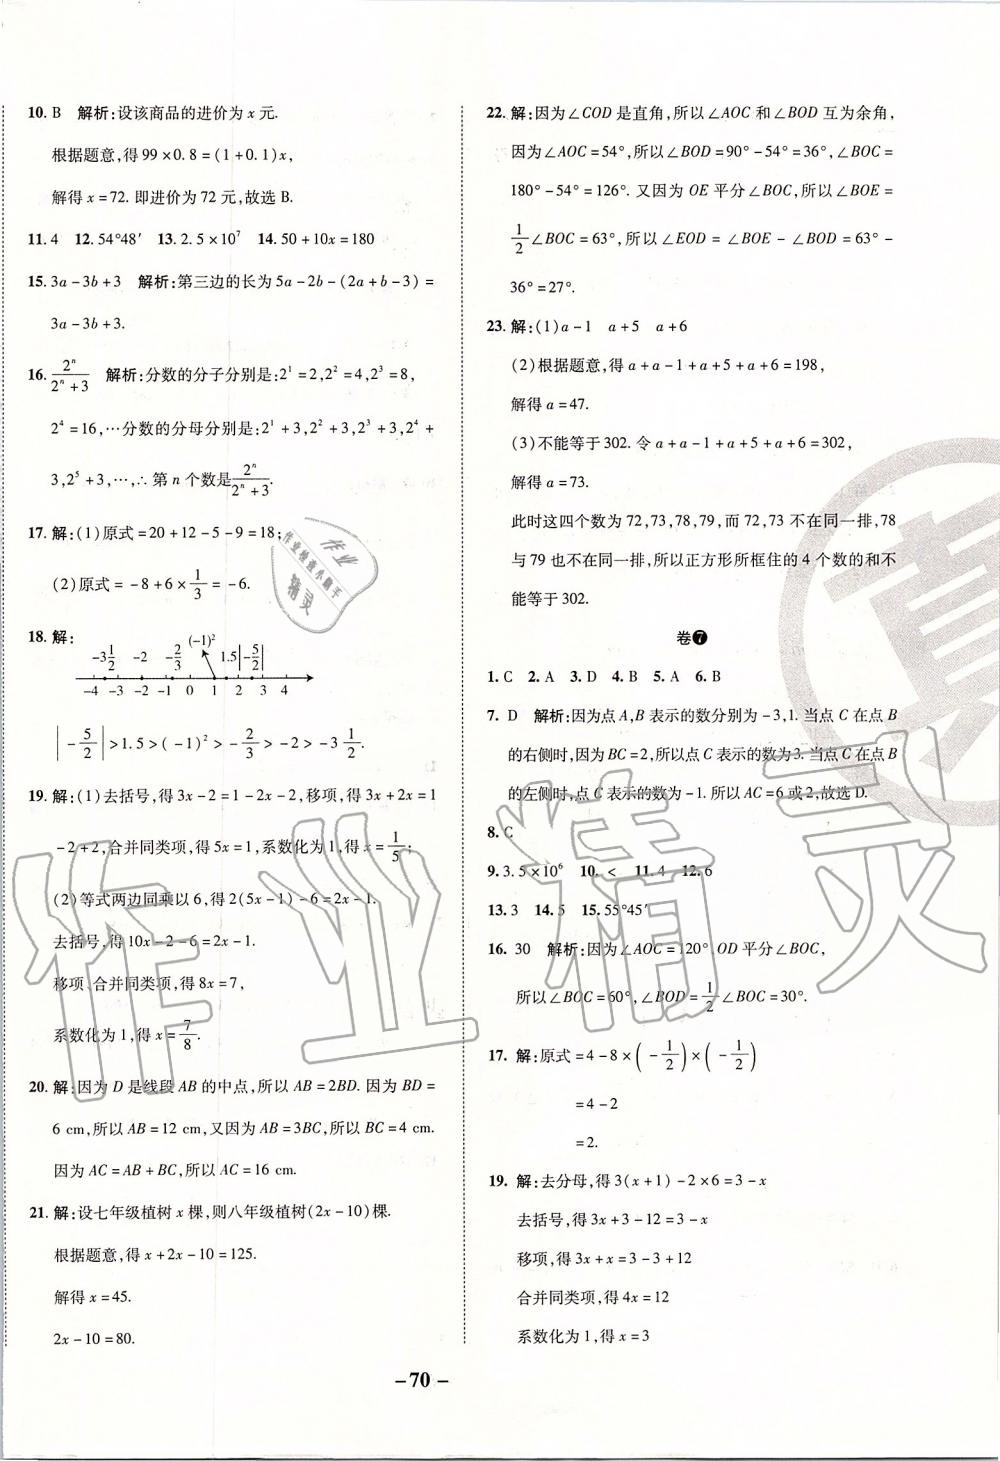 10. B　解析:设该商品的进价为 x 元.
根据题意,得 99×0.8=(1+0.1)x,
解得 x=72. 即进价为 72 元,故选 B.
11. 4　12. 54°48′　13. 2.5×10⁷　14. 50+10x=180
15. 3a-3b+3　解析:第三边的长为 5a-2b-(2a+b-3)=
3a-3b+3.
16. 2ⁿ/(2ⁿ+3)　解析:分数的分子分别是:2¹=2,2²=4,2³=8,
2⁴=16,…分数的分母分别是:2¹+3,2²+3,2³+3,2⁴+
3,2⁵+3,…,∴第 n 个数是 2ⁿ/(2ⁿ+3).
17. 解:(1)原式=20+12-5-9=18;
(2)原式=-8+6×1/3=-6.
18. 解:
-3 1/2　-2　-2/3　(-1)²　1.5　|-5/2|
-4　-3　-2　-1　0　1　2　3　4
|-5/2|>1.5>(-1)²>-2/3>-2>-3 1/2.
19. 解:(1)去括号,得 3x-2=1-2x-2,移项,得 3x+2x=1
-2+2,合并同类项,得 5x=1,系数化为 1,得 x=1/5;
(2)等式两边同乘以 6,得 2(5x-1)-6=2x-1.
去括号,得 10x-2-6=2x-1.
移项、合并同类项,得 8x=7,
系数化为 1,得 x=7/8.
20. 解:因为 D 是线段 AB 的中点,所以 AB=2BD. 因为 BD=
6 cm,所以 AB=12 cm,又因为 AB=3BC,所以 BC=4 cm.
因为 AC=AB+BC,所以 AC=16 cm.
21. 解:设七年级植树 x 棵,则八年级植树(2x-10)棵.
根据题意,得 x+2x-10=125.
解得 x=45.
2x-10=80.
22. 解:因为∠COD 是直角,所以∠AOC 和∠BOD 互为余角,
因为∠AOC=54°,所以∠BOD=90°-54°=36°,∠BOC=
180°-54°=126°. 又因为 OE 平分∠BOC,所以∠BOE=
1/2∠BOC=63°,所以∠EOD=∠BOE-∠BOD=63°-
36°=27°.
23. 解:(1)a-1　a+5　a+6
(2)根据题意,得 a+a-1+a+5+a+6=198,
解得 a=47.
(3)不能等于 302. 令 a+a-1+a+5+a+6=302,
解得 a=73.
此时这四个数为 72,73,78,79,而 72,73 不在同一排,78
与 79 也不在同一排,所以正方形所框住的 4 个数的和不
能等于 302.
卷❼
1. C　2. A　3. D　4. B　5. A　6. B
7. D　解析:因为点 A,B 表示的数分别为-3,1. 当点 C 在点 B
的右侧时,因为 BC=2,所以点 C 表示的数为 3. 当点 C 在点 B
的左侧时,点 C 表示的数为-1. 所以 AC=6 或 2,故选 D.
8. C
9. 3.5×10⁶　10. <　11. 4　12. 6
13. 3　14. 5　15. 55°45′
16. 30　解析:因为∠AOC=120°,OD 平分∠BOC,
所以∠BOC=60°,∠BOD=1/2∠BOC=30°.
17. 解:原式=4-8×(-1/2)×(-1/2)
=4-2
=2.
19. 解:去分母,得 3(x+1)-2×6=3-x
去括号,得 3x+3-12=3-x
移项,得 3x+x=3-3+12
合并同类项,得 4x=12
系数化为 1,得 x=3
-70-
作业
作业检查小助手
精灵
作业精灵
真